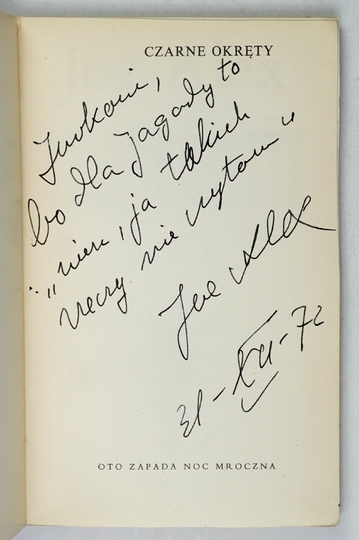 CZARNE OKRĘTY
bo dla Jagody to
ja takich
rzeczy nie czytam"
Joe Alex
31-XII-72
OTO ZAPADA NOC MROCZNA